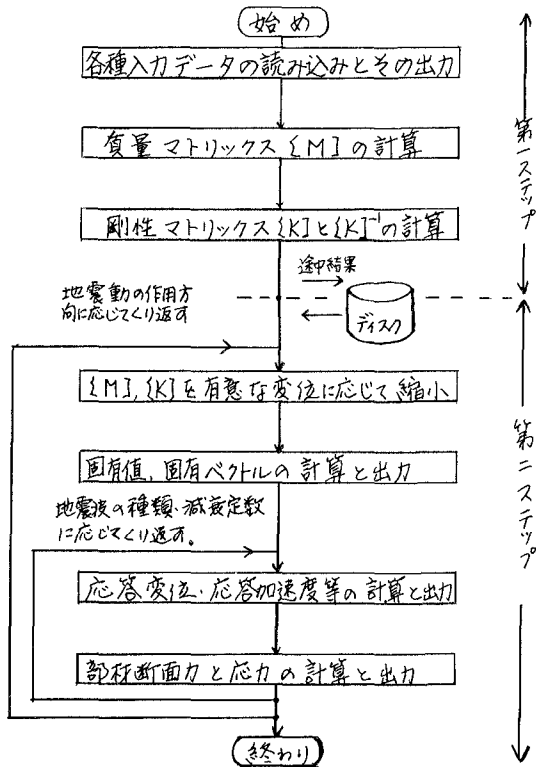 始め
各種入力データの読み込みとその出力
質量マトリックス[M]の計算
剛性マトリックス[K]と[K]⁻¹の計算
途中結果
地震動の作用方
向に応じてくり返す
ディスク
[M],[K]を有意な変位に応じて縮小
固有値,固有ベクトルの計算と出力
地震波の種類・減衰定数
に応じてくり返す。
応答変位・応答加速度等の計算と出力
部材断面力と応力の計算と出力
終わり
第一ステップ
第二ステップ